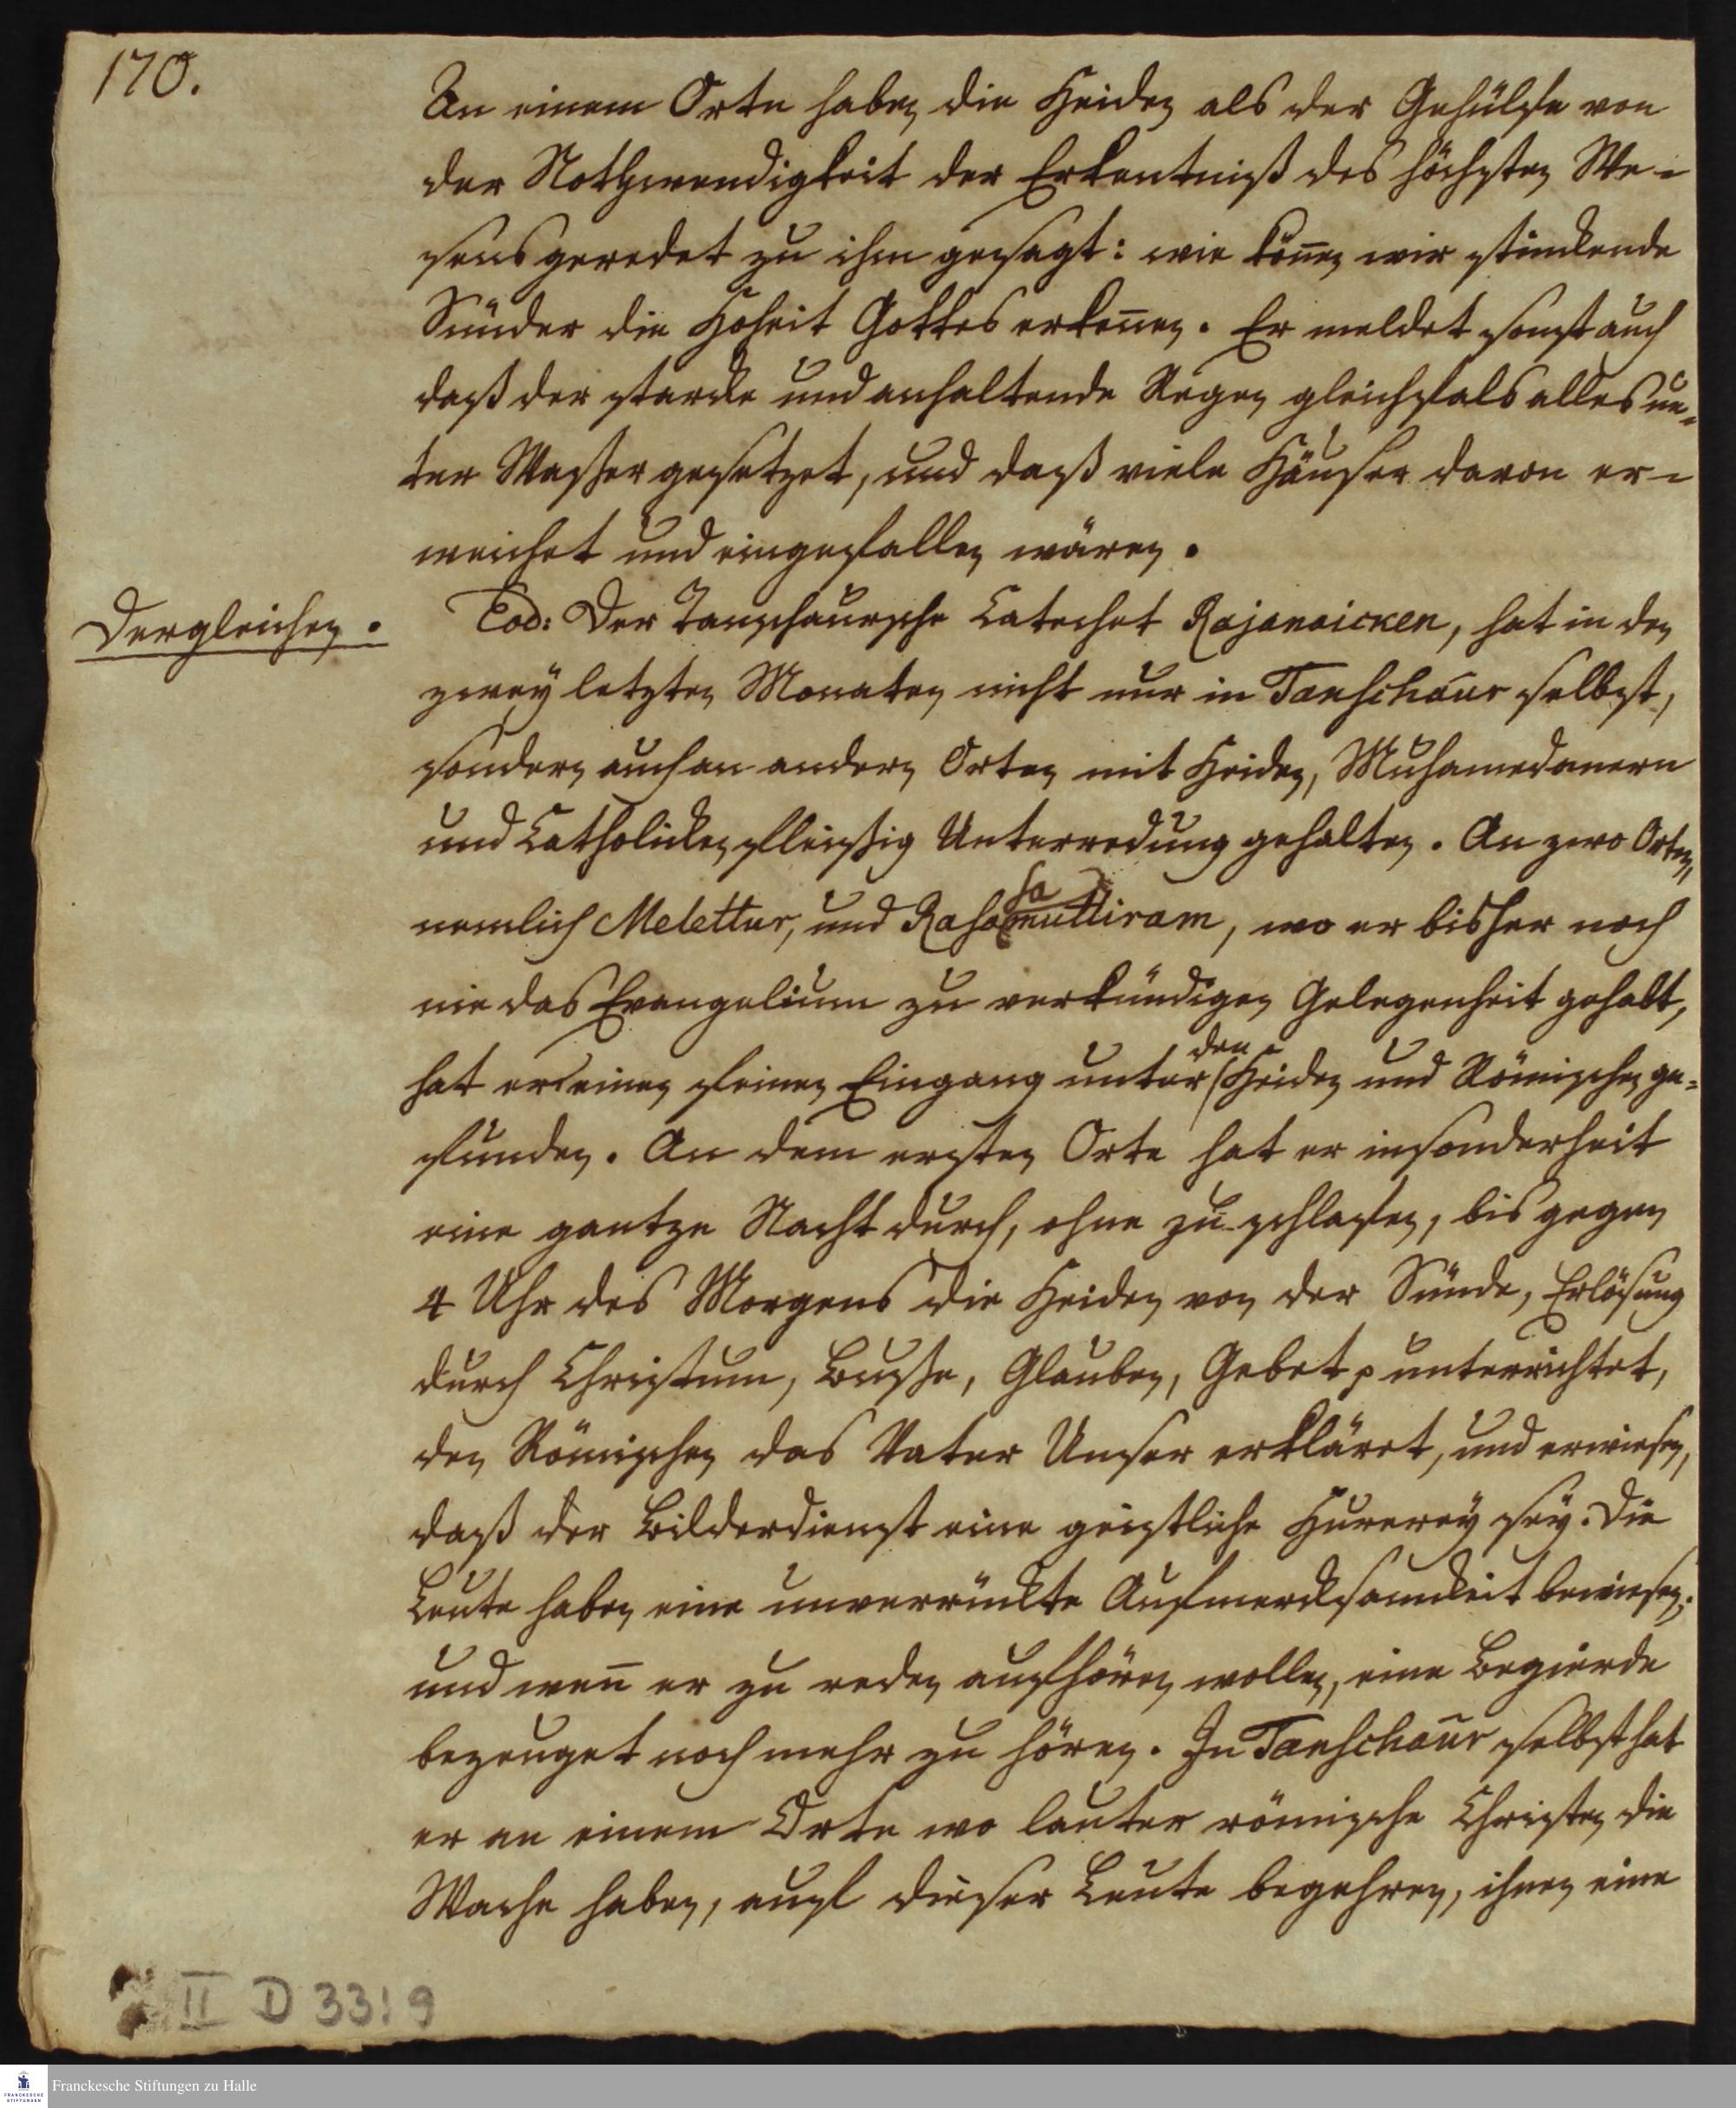 170.
An einem Orte haben die Heiden als der Gehülfe von
der Nothwendigkeit der Erkentniß des höchsten We-
sens geredet zu ihm gesagt: wie können wir stinckende
Sünder die Hoheit Gottes erkennen. Er meldet sonst auch
daß der starcke und anhaltende Regen gleichfals alles un-
ter Wasser gesetzet, und daß viele Häuser davon er-
weichet und eingefallen wären.
Dergleichen.
Eod: Der Tanschaursche Catechet Rajanaicken, hat in den
zwey letzten Monaten nicht nur in Tanschaur selbst,
sondern auch an andern Orten mit Heiden, Muhamedanern
und Catholicken fleissig Unterredung gehalten. An zwo Orten,
sa
nemlich Melettur, und Rasamuttiram, wo er bisher noch
nie das Evangelium zu verkündigen Gelegenheit gehabt,
den
hat er einen feinen Eingang unter Heiden und Römischen ge-
funden. An dem ersten Orte hat er insonderheit
eine gantze Nacht durch, ohne zu schlafen, bis gegen
4 Uhr des Morgens die Heiden von der Sünde, Erlösung
durch Christum, Busse, Glauben, Gebet p unterrichtet,
den Römischen das Vater Unser erkläret, und erwiesen,
daß der Bilderdienst eine geistliche Hurerey sey. Die
Leute haben eine unverrückte Aufmercksamkeit bewiesen,
und wenn er zu reden aufhören wollen, eine Begierde
bezeuget noch mehr zu hören. In Tanschaur selbst hat
er an einem Orte wo lauter römische Christen die
Wache haben, auf dieser Leute begehren, ihnen eine
II D 33:9
Franckesche Stiftungen zu Halle
FRANCKESCHE
STIFTUNGEN